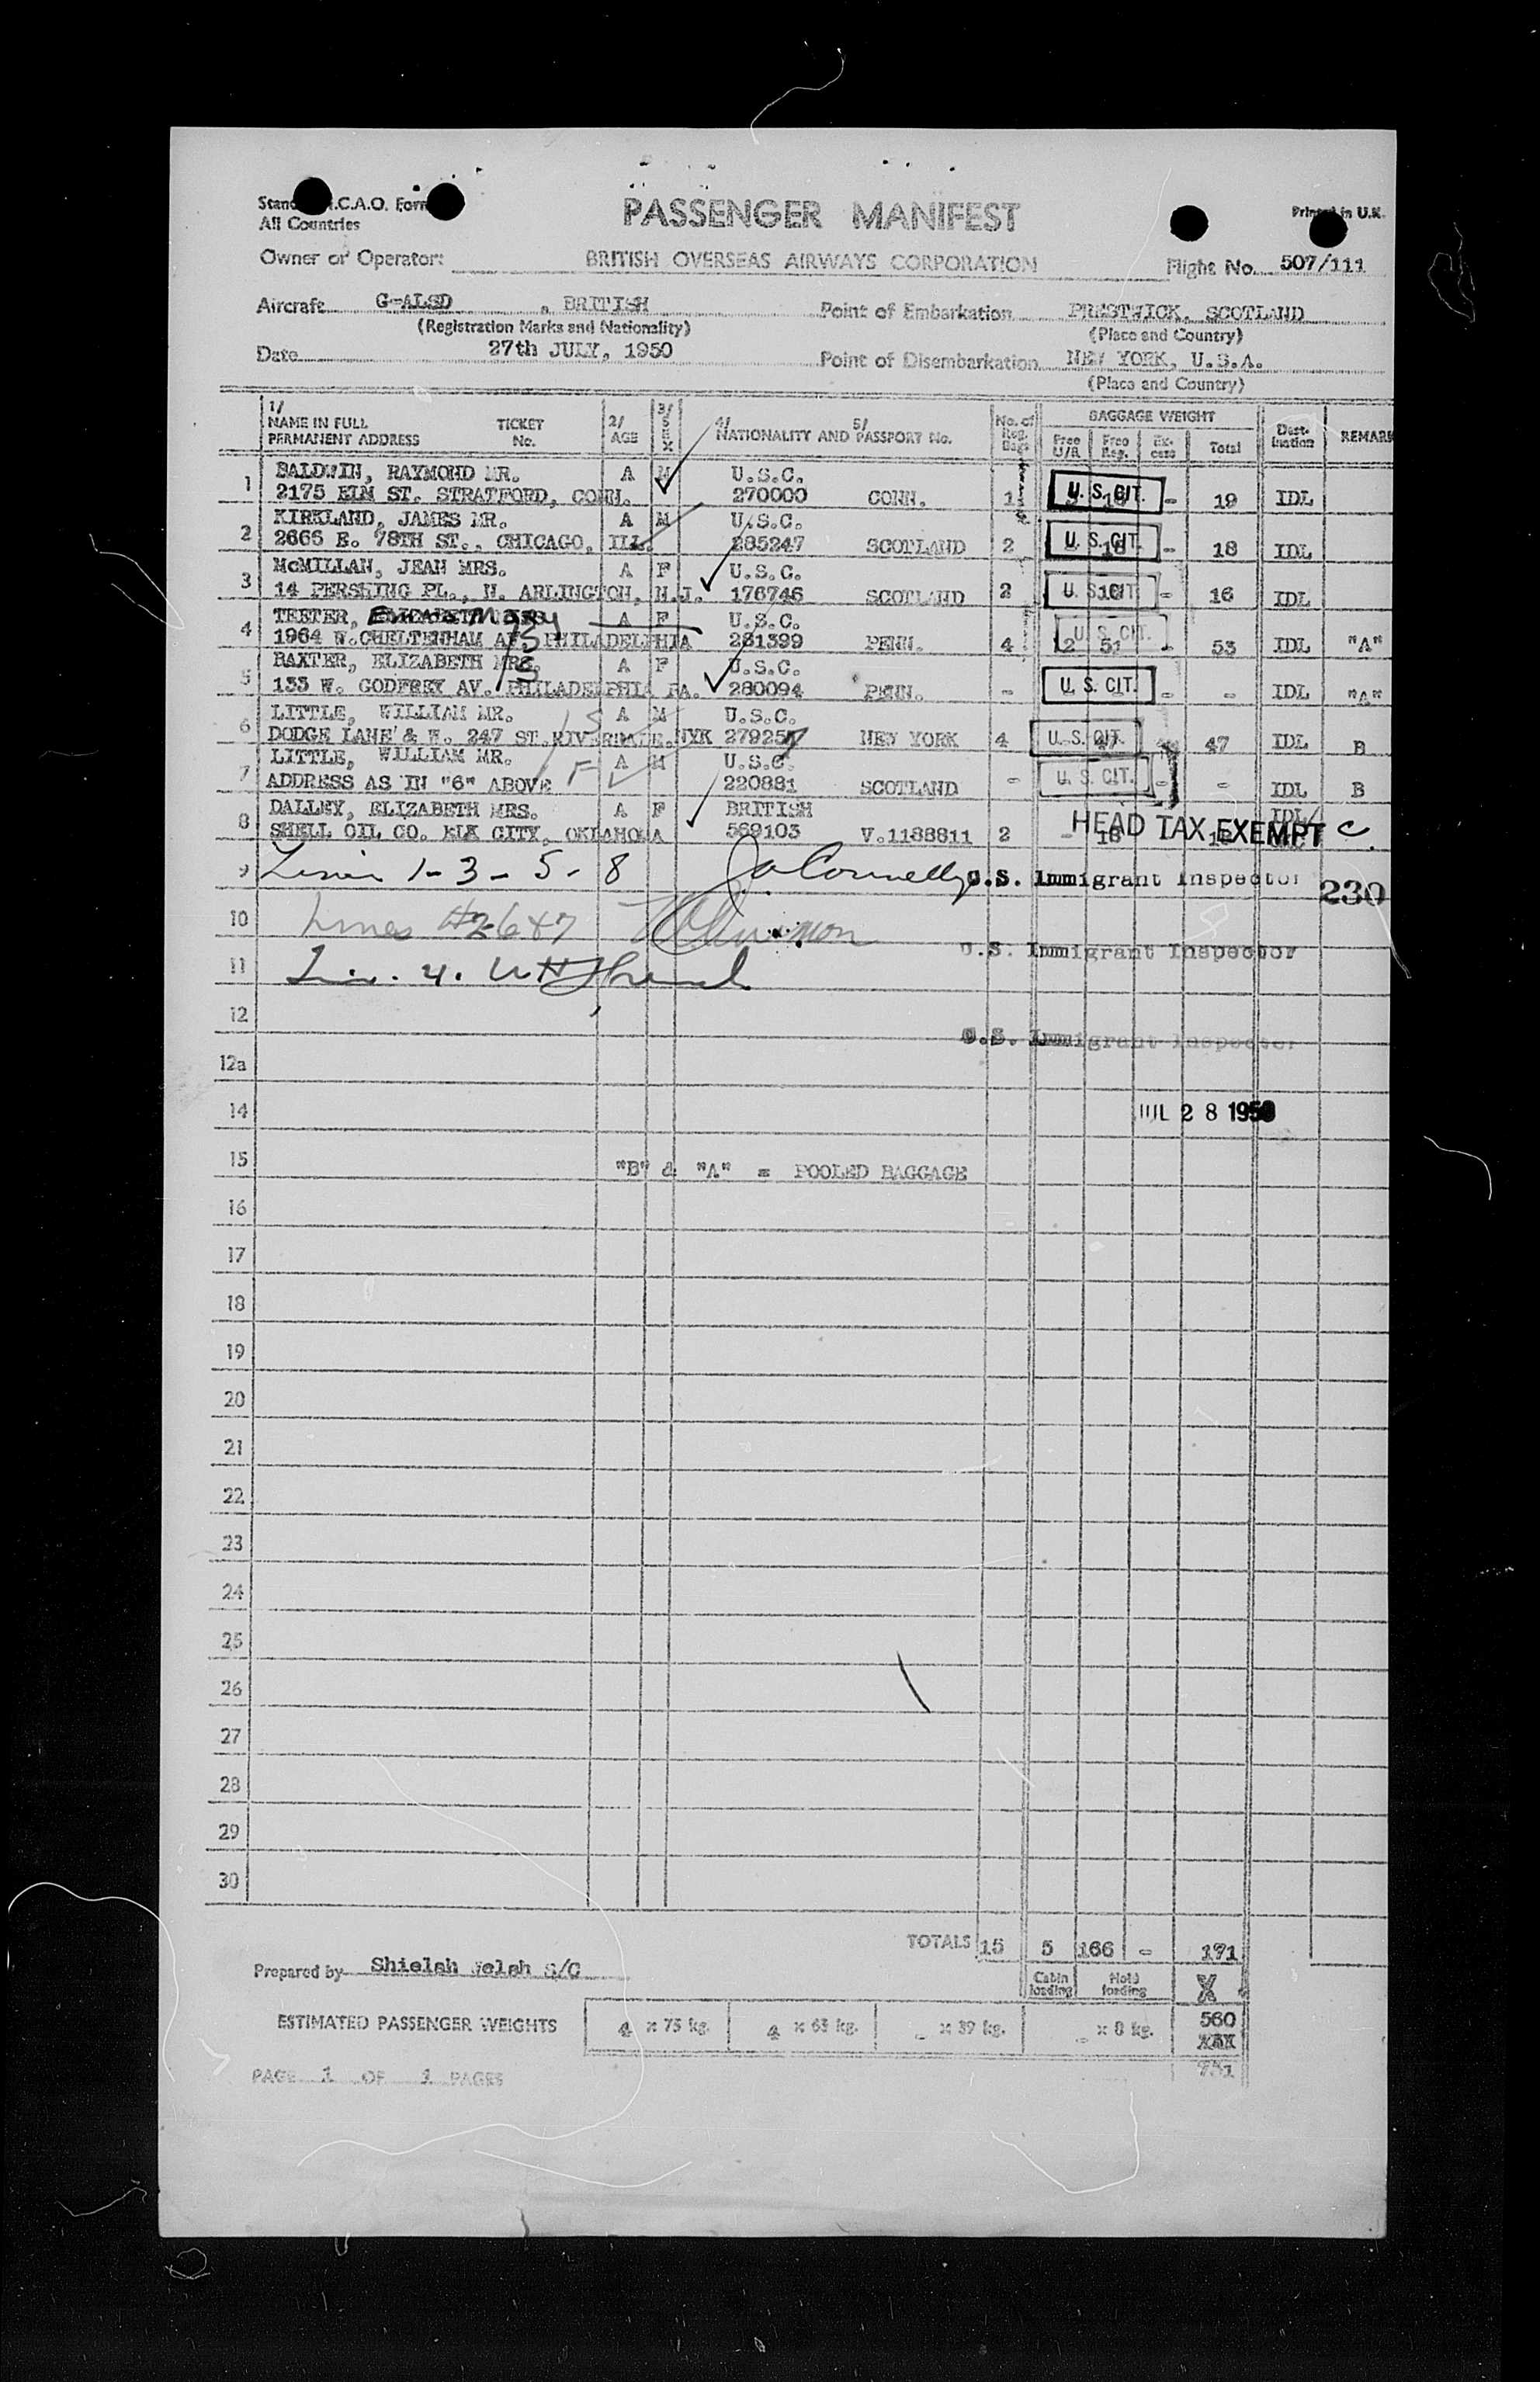 PASSENGER MANIFEST
All Countries
Printed in U.K.
Owner or Operator: BRITISH OVERSEAS AIRWAYS CORPORATION Flight No. 507/111
Aircraft G-ALSD , BRITISH Point of Embarkation PRESTWICK, SCOTLAND
(Registration Marks and Nationality) (Place and Country)
Date 27th JULY, 1950 Point of Disembarkation NEW YORK, U.S.A.
(Place and Country)
1/ NAME IN FULL PERMANENT ADDRESS TICKET No. 2/ AGE 3/ SEX 4/ 5/ NATIONALITY AND PASSPORT No. No. of Reg. Bags BAGGAGE WEIGHT Free U/R Free Reg. Ex-cess Total Dest-ination REMARK
1 BALDWIN, RAYMOND MR. A M U.S.C.
2175 ELM ST. STRATFORD, CONN. 270000 CONN. 1 U. S. CIT. - 19 IDL
2 KIRKLAND, JAMES MR. A M U.S.C.
2665 E. 78TH ST., CHICAGO, ILL. 285247 SCOTLAND 2 U. S. CIT. 18 - 18 IDL
3 McMILLAN, JEAN MRS. A F U.S.C.
14 PERSHING PL., N. ARLINGTON, N.J. 176746 SCOTLAND 2 U. S. CIT. 16 - 16 IDL
4 TEETER, Mary A F U.S.C.
1964 W.CHELTENHAM AV. PHILADELPHIA 281399 PENN. 4 U. S. CIT. 2 51 - 53 IDL "A"
5 BAXTER, ELIZABETH MRS. A F U.S.C.
133 W. GODFREY AV. PHILADELPHIA PA. 280094 PENN. - U. S. CIT. - - IDL "A"
6 LITTLE, WILLIAM MR. A M U.S.C.
DODGE LANE & W. 247 ST. RIVERDALE.NYK 279257 NEW YORK 4 U. S. CIT. 47 47 IDL B
7 LITTLE, WILLIAM MR. A M U.S.C.
ADDRESS AS IN "6" ABOVE 220881 SCOTLAND - U. S. CIT. - - IDL B
8 DALLEY, ELIZABETH MRS. A F BRITISH IDL/
SHELL OIL CO. ELK CITY, OKLAHOMA 569103 V.1188811 2 - 18 HEAD TAX EXEMPT
9 Lines 1-3-5-8 U.S. Immigrant Inspector 230
10 Lines #2 6 & 7 U.S. Immigrant Inspector
11 4.
12 U.S. Immigrant Inspector
12a
14 JUL 28 1950
15 "B" & "A" = POOLED BAGGAGE
16
17
18
19
20
21
22
23
24
25
26
27
28
29
30
TOTALS 15 5 166 - 171
Prepared by Shielah Welsh S/C Cabin loading Hold loading X
ESTIMATED PASSENGER WEIGHTS 4 x 75 kg. 4 x 65 kg. - x 39 kg. - x 8 kg. 560
731
PAGE 1 OF 1 PAGES